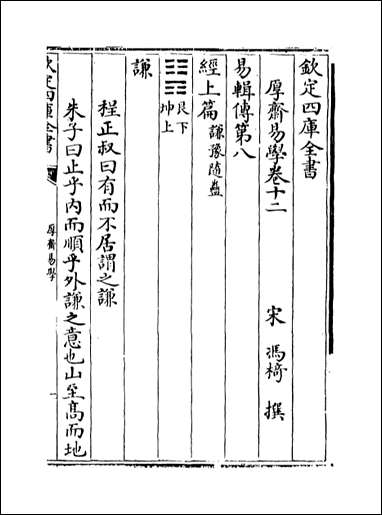 欽定四庫全書
厚齋易學卷十二
宋 馮椅 撰
易輯傳第八
經上篇 謙豫隨蠱
䷎ 艮下
坤上
謙
程正叔曰有而不居謂之謙
朱子曰止乎內而順乎外謙之意也山至高而地
欽定四庫全書
厚齋易學